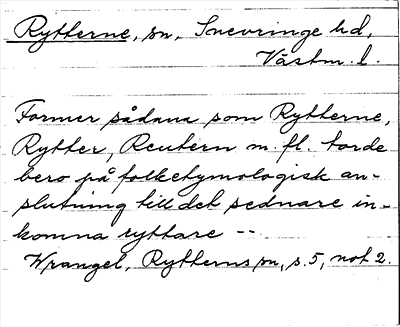 Rytterne, sn, Snevringe hd,
Västm. l.
Former sådana som Rytterne,
Rytter, Reutern m. fl. torde
bero på folketymologisk an-
slutning till det sednare in-
komna ryttare --
Wrangel, Rytterns sn, s. 5, not 2.